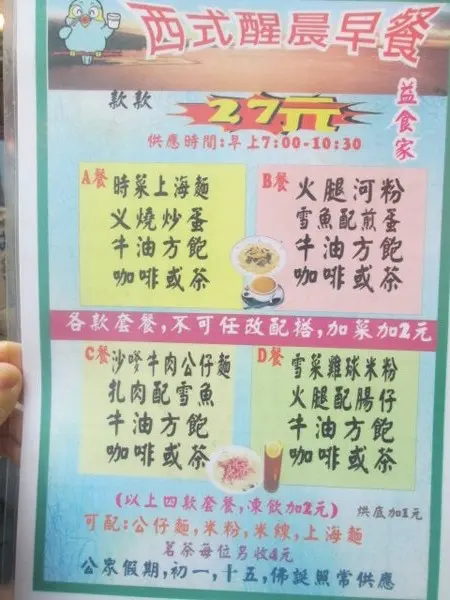 西式醒晨早餐
益食家
款款
27元
供應時間:早上7:00-10:30
A餐
時菜上海麵
义燒炒蛋
牛油方飽
咖啡或茶
B餐
火腿河粉
雪魚配煎蛋
牛油方飽
咖啡或茶
各款套餐,不可任改配搭,加菜加2元
C餐
沙嗲牛肉公仔麵
扎肉配雪魚
牛油方飽
咖啡或茶
D餐
雪菜雞球米粉
火腿配腸仔
牛油方飽
咖啡或茶
(以上四款套餐,凍飲加2元)
烘底加1元
可配:公仔麵,米粉,米線,上海麵
茗茶每位另收4元
公眾假期,初一,十五,佛誕照常供應